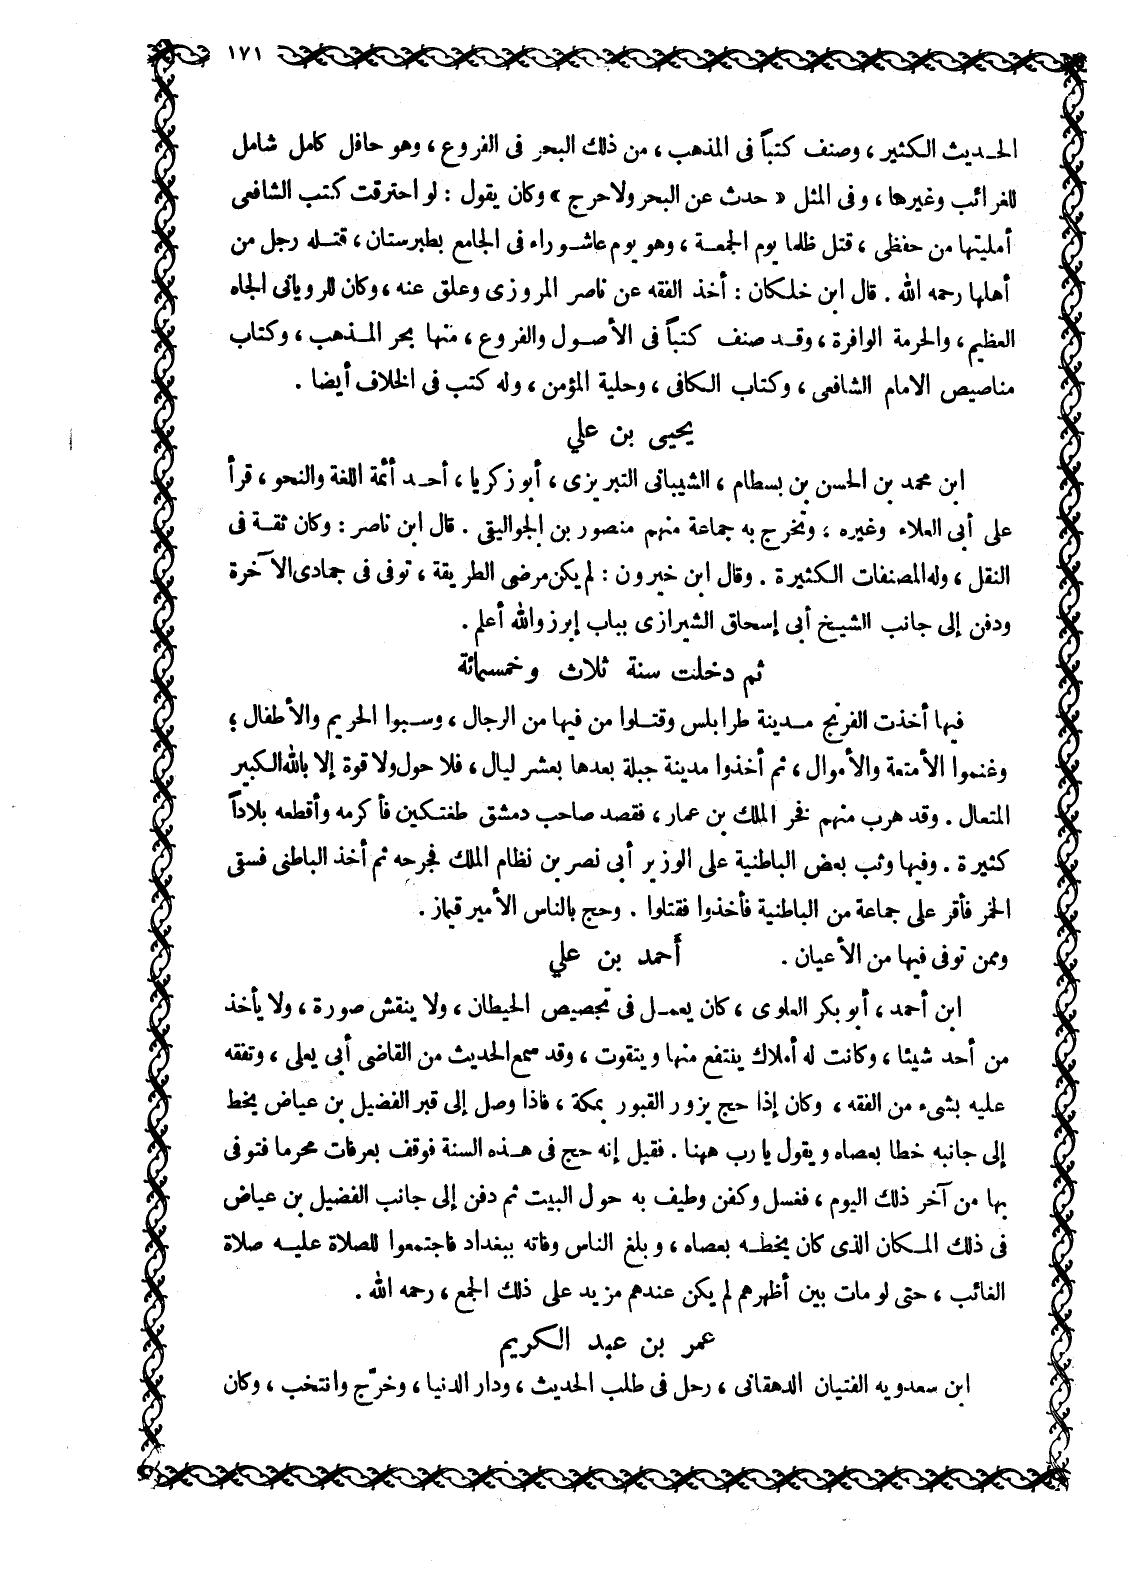 ١٧١
الحديث الكثير ، وصنف كتباً فى المذهب ، من ذلك البحر فى الفروع ، وهو حافل كامل شامل
للغرائب وغيرها ، وفى المثل « حدث عن البحر ولا حرج » وكان يقول : لو احترقت كتب الشافعى
أمليتها من حفظى ، قتل ظلما يوم الجمعة ، وهو يوم عاشوراء فى الجامع بطبرستان ، قتله رجل من
أهلها رحمه الله . قال ابن خلكان : أخذ الفقه عن ناصر المروزى وعلق عنه ، وكان للرويانى الجاه
العظيم ، والحرمة الوافرة ، وقد صنف كتباً فى الأصول والفروع ، منها بحر المذهب ، وكتاب
مناصيص الامام الشافعى ، وكتاب الكافى ، وحلية المؤمن ، وله كتب فى الخلاف أيضا .
يحيى بن علي
ابن محمد بن الحسن بن بسطام ، الشيبانى التبريزى ، أبو زكريا ، أحد أئمة اللغة والنحو ، قرأ
على أبى العلاء وغيره ، وتخرج به جماعة منهم منصور بن الجواليقى . قال ابن ناصر : وكان ثقة فى
النقل ، وله المصنفات الكثيرة . وقال ابن خيرون : لم يكن مرضى الطريقة ، توفى فى جمادى الآخرة
ودفن إلى جانب الشيخ أبى إسحاق الشيرازى بباب إبرز والله أعلم .
ثم دخلت سنة ثلاث وخمسمائة
فيها أخذت الفرنج مدينة طرابلس وقتلوا من فيها من الرجال ، وسبوا الحريم والأطفال ؛
وغنموا الأمتعة والأموال ، ثم أخذوا مدينة جبلة بعدها بعشر ليال ، فلا حول ولا قوة إلا بالله الكبير
المتعال . وقد هرب منهم فخر الملك بن عمار ، فقصد صاحب دمشق طغتكين فأكرمه وأقطعه بلاداً
كثيرة . وفيها وثب بعض الباطنية على الوزير أبى نصر بن نظام الملك فجرحه ثم أخذ الباطنى فسقى
الخمر فأقر على جماعة من الباطنية فأخذوا فقتلوا . وحج بالناس الأمير قيماز .
وممن توفى فيها من الأعيان . أحمد بن علي
ابن أحمد ، أبو بكر العلوى ، كان يعمل فى تجصيص الحيطان ، ولا ينقش صورة ، ولا يأخذ
من أحد شيئا ، وكانت له أملاك ينتفع منها ويتقوت ، وقد سمع الحديث من القاضى أبى يعلى ، وتفقه
عليه بشىء من الفقه ، وكان إذا حج يزور القبور بمكة ، فاذا وصل إلى قبر الفضيل بن عياض يخط
إلى جانبه خطا بعصاه ويقول يا رب ههنا . فقيل إنه حج فى هذه السنة فوقف بعرفات محرما فتوفى
بها من آخر ذلك اليوم ، فغسل وكفن وطيف به حول البيت ثم دفن إلى جانب الفضيل بن عياض
فى ذلك المكان الذى كان يخطه بعصاه ، وبلغ الناس وفاته ببغداد فاجتمعوا للصلاة عليه صلاة
الغائب ، حتى لو مات بين أظهرهم لم يكن عندهم مزيد على ذلك الجمع ، رحمه الله .
عمر بن عبد الكريم
ابن سعدويه الفتيان الدهقانى ، رحل فى طلب الحديث ، ودار الدنيا ، وخرّج وانتخب ، وكان